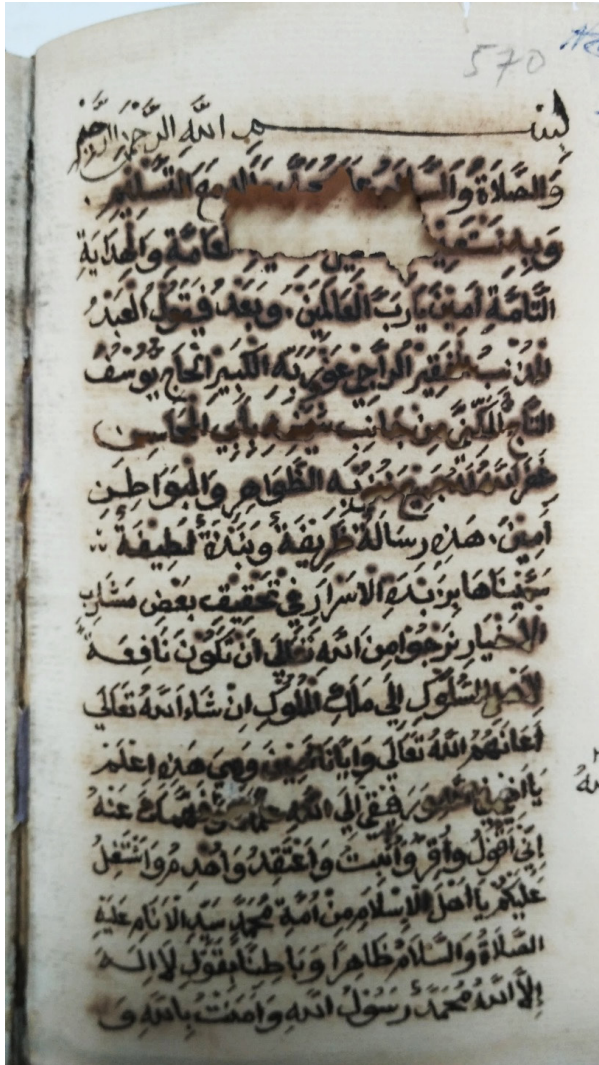 570
بسم الله الرَّحْمَنِ الرَّحِيم
وَالصَّلَاةُ وَالسَّلَامُ مَعَ التَّسْلِيمِ
وَبِهِ نَسْتَعِين العَامَّةِ وَالْهِدَايَةِ
التَّامَّةِ اَمِينَ يَارَبَّ الْعَالَمِينَ. وَبَعْدُ فَيَقُولُ الْعَبْدُ
المُذْنِبُ الْفَقِيرُ الرَّاجِي عَفْوَ رَبِّهِ الْكَبِيرِ الْحَاجُّ يُوسُفُ
التَّاجُ الْمُكَنَّى مِنْ جَانِبِ شَيْخِهِ بِأَبِي الْمَحَاسِنِ
غَفَرَ اللهُ لَهُ جَمِيعَ ذُنُوبِهِ الظَّوَاهِرِ وَالْبَوَاطِنِ
اَمِينَ. هَذِهِ رِسَالَةٌ ظَرِيفَةٌ وَنُبْذَةٌ لَطِيفَةٌ
سَمَّيْنَاهَا بِزُبْدَةِ الْاَسْرَارِ فِي تَحْقِيقِ بَعْضِ مَشَارِبِ
الْاَخْيَارِ نَرْجُوا مِنَ اللهِ تَعَالَى اَنْ تَكُونَ نَافِعَةً
لِاَهْلِ السُّلُوكِ اِلَى مَلِكِ الْمُلُوكِ اِنْ شَاءَ اللهُ تَعَالَى
اَعَانَهُمُ اللهُ تَعَالَى وَاِيَّانَا اَمِينَ وَهِيَ هَذِهِ اعْلَمْ
يَا اَخِي اِلَى اللهِ عَنْهُ
اِنِّي اَقُولُ وَاُقِرُّ وَاُثْبِتُ وَاَعْتَقِدُ وَاُشْهِدُكُمْ
عَلَيْكُمْ يَا اَهْلَ الْاِسْلَامِ مِنْ اُمَّةِ مُحَمَّدٍ سَيِّدِ الْاَنَامِ عَلَيْهِ
الصَّلَاةُ وَالسَّلَامُ ظَاهِرًا وَبَاطِنًا بِقَوْلِ لَا اِلَهَ
اِلَّا اللهُ مُحَمَّدٌ رَسُولُ اللهِ وَاَمَنْتُ بِاللهِ وَ